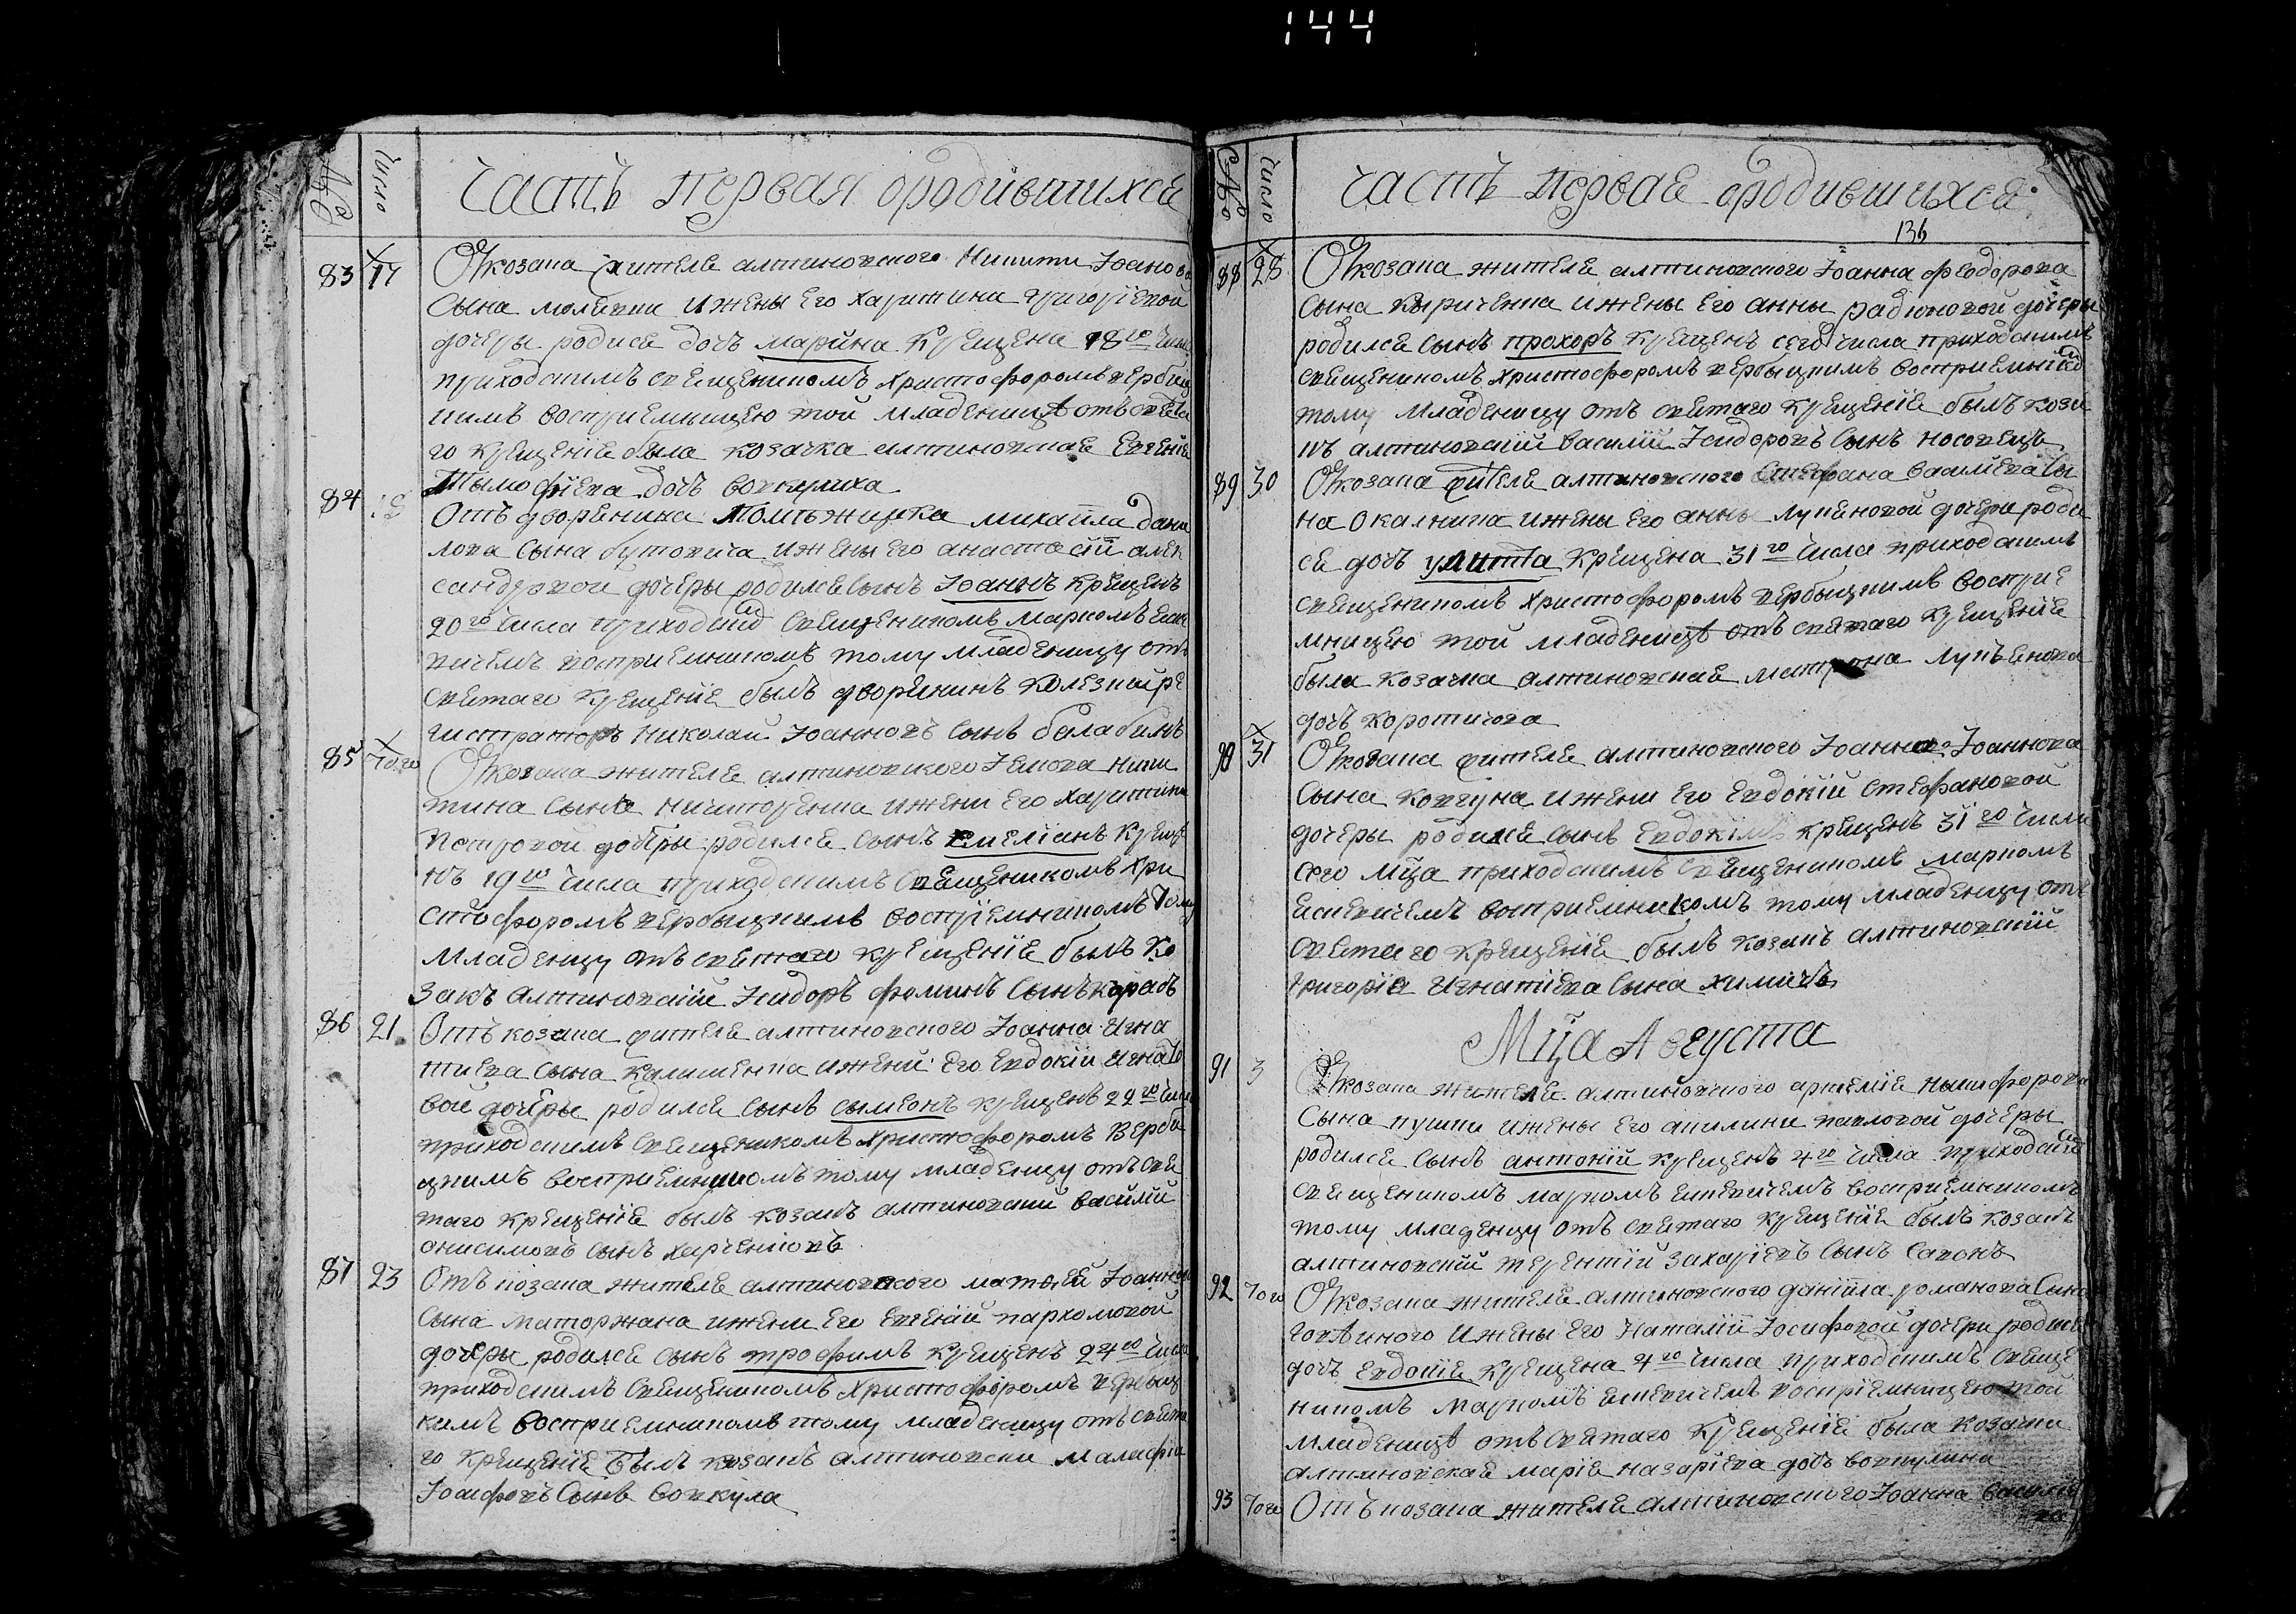 144
№ Число Часть Первая ородившихсѧ
83 17 Ѿкозака жителѧ алтиновского Никити Іоанова
Сына малѧвки ижены Его Харитини григоріевой
дочеры родисѧ дочъ марина Крещена 18го числа
приходскимъ свѧщеникомъ Христофоромъ вербиц
кимъ восприемницею той младеницѣ отъ свѧта
го крещеніѧ была козачка алтиновскаѧ Евгеніѧ
Тымофіева дочъ вовкулиха
84 19 Отъ дворѧнина Михайла Дани
лова Сына бутовича ижены Его анастасіи алек
сандровой дочеры родилсѧ Сынъ Іоаннъ крещенъ
20го числа приходским Свѧщеникомъ Маркомъ
восприемникомъ тому младеницу отъ
свѧтаго крещеніѧ былъ дворѧнинъ Колезкайре
гистраторъ Николай Іоанновъ Сынъ балабинъ
85 Того Ѿкозака жителѧ алтиновского Ники
тина Сына Ничипоренка ижени Его Харитини
Петровой дочеры родилсѧ Сынъ Емеліанъ Креще
нъ 19го числа приходскимъ Свѧщеникомъ Хри
стофоромъ вербыцкимъ воспріемникомъ тому
Младенцу отъ свѧтаго крещеніѧ былъ Ко
закъ алтиновскій Исидоръ фоминъ Сынъ
86 21 Отъ козака жителѧ алтиновского Іоанна Игна
тиева Сына ижени Его Евдокіи Игнатѣ
вой дочеры родилсѧ Сынъ сымеонъ крещенъ 22го числа
приходскимъ Свѧщеникомъ Христофоромъ Верби
цкимъ восприемникомъ тому младеницу отъ свѧ
таго крещеніѧ былъ козакъ алтиновский василій
онисимовъ Сынъ
87 23 Отъ козака жителѧ алтиновского матѳей Іоаннова
Сына маторжана ижени Его Евгеній пархомовой
дочеры родилсѧ Сынъ трофимъ крещенъ 24го числа
приходскимъ Свѧщеникомъ Христофоромъ вербыц
кимъ восприемникомъ тому младеницу отъ свѧта
го крещеніѧ былъ козакъ алтиновски малафій
Іосифовъ Сынъ вовкула
№ Число Часть Перваѧ ородившихсѧ
136
88 28 Ѿкозака жителѧ алтиновского Іоанна феодорова
Сына Кыриченка ижены Его анны радионовой дочеры
родилсѧ Сынъ прохоръ крещенъ сего числа приходскимъ
свѧщеникомъ Христофоромъ вербыцкимъ восприемником
тому младеницу отъ свѧтаго крещеніѧ былъ коза
къ алтиновскій василій Исидоровъ Сынъ носовецъ
89 30 Ѿкозака жителѧ алтиновского Стефана василіева Сы
на Окалкина ижены Его анны дочери роди
сѧ дочъ улитта крещена 31го числа приходскимъ
свѧщеникомъ Христофоромъ вербыцкимъ восприе
мницею той младеницѣ отъ свѧтаго крещеніѧ
была козачка алтиновскаѧ
дочъ
90 31 Ѿкозака жителѧ алтиновского Іоанна Іоаннова
Сына Ковгуна ижени Его Евдокій Стефановой
дочеры родилсѧ Сынъ Евдокімъ крещенъ 31го числа
сего Мца приходскимъ Свѧщеникомъ Маркомъ
восприемникомъ тому младеницу отъ
свѧтаго крещеніѧ былъ козакъ алтиновскій
григоріѧ Игнатіева Сына химичъ
Мца Августа
91 3 Ѿкозака жителѧ алтиновского артеміѧ никифорова
Сына пушки ижены Его акилини павловой дочеры
родилсѧ Сынъ антоній крещенъ 4го числа приходским
свѧщеникомъ маркомъ восприемникомъ
тому младенцу отъ свѧтаго крещеніѧ былъ козакъ
алтиновскій терентій захаріевъ Сынъ савонъ
92 Того Ѿкозака жителѧ алтиновского даніила романова Сына
ижены Его Наталіи Іосифовой дочери родисѧ
дочъ Евдокіѧ крещена 4го числа приходскимъ Свѧще
никомъ маркомъ воспріемницею той
младеницѣ отъ Свѧтаго крещеніѧ была козачка
алтиновскаѧ маріѧ назаріева дочъ
93 Того Отъ козака жителѧ алтиновского Іоанна василіе
ва